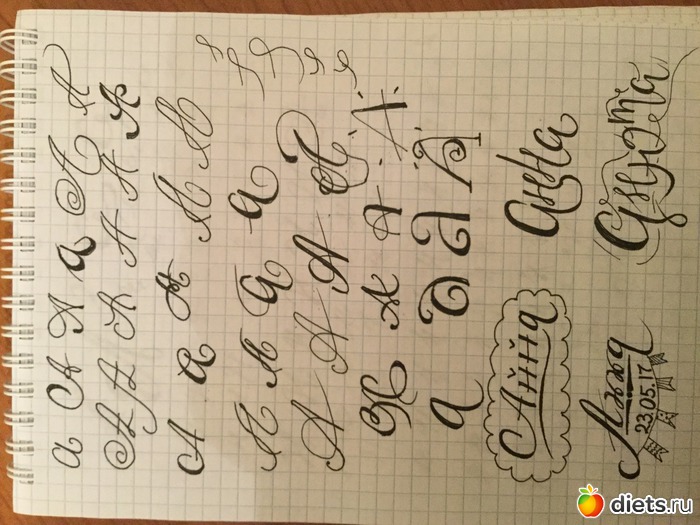 а А А а А А
А А А А А А
А а А А А
А А а а
А А А А
А А А А
а а а А
Анна анна
Анна анюта
23.05.17
diets.ru